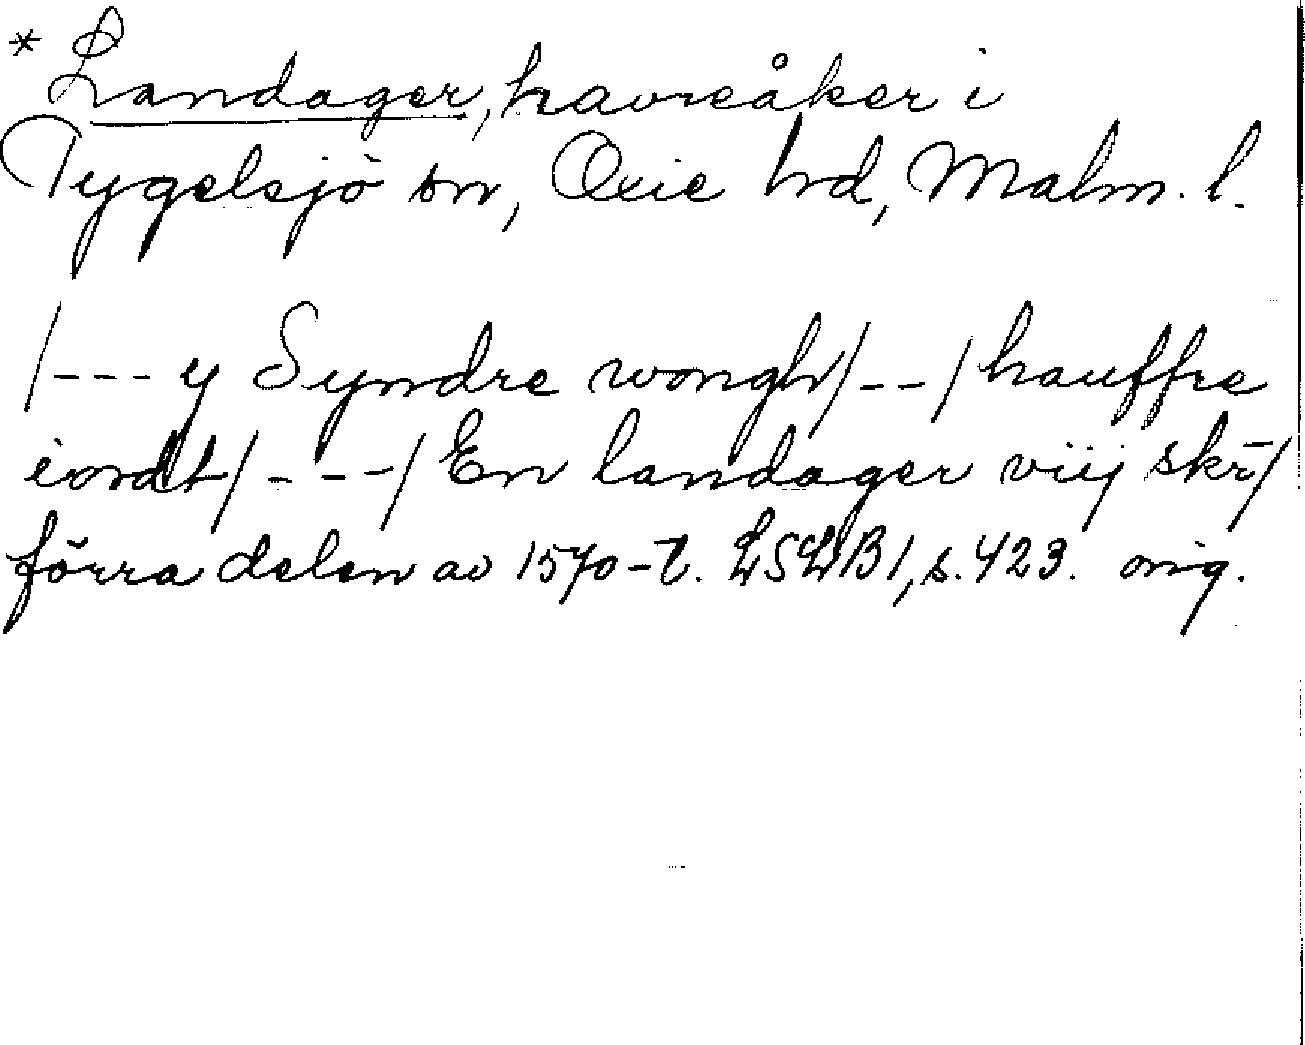 * Landager, havreåker i
Tygelsjö sn, Oxie hd, Malm. l.
/--- y Syndre wongh/--/hauffre
iordt/---/En landager viij skr̄/
förra delen av 1570-t. LSLB1, s. 423. orig.